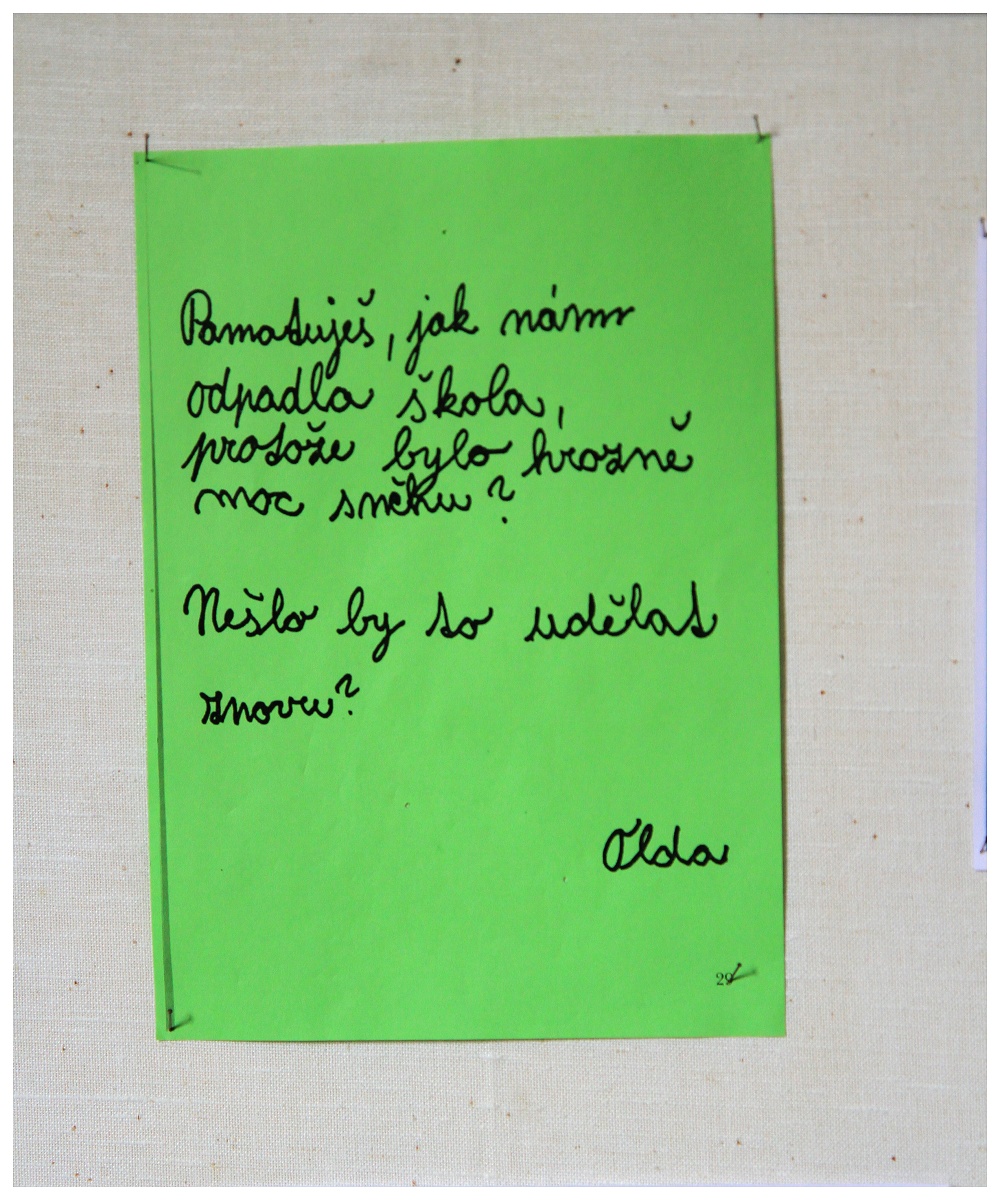 Pamatuješ, jak nám
odpadla škola,
protože bylo hrozně
moc sněku?
Nešlo by to udělat
znovu?
Olda
29